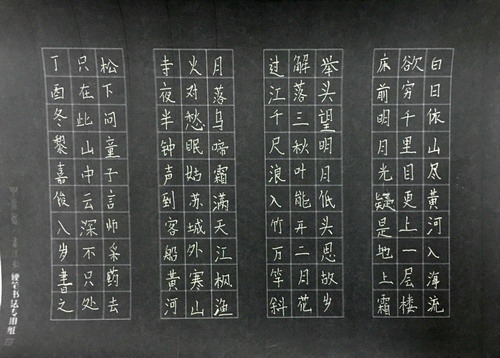 白日依山尽黄河入海流
欲穷千里目更上一层楼
床前明月光疑是地上霜
举头望明月低头思故岁
解落三秋叶能开二月花
过江千尺浪入竹万竿斜
月落乌啼霜满天江枫渔
火对愁眠姑苏城外寒山
寺夜半钟声到客船黄河
松下问童子言师采药去
只在此山中云深不只处
丁酉冬黎嘉俊入岁書之
硬笔书法专用纸